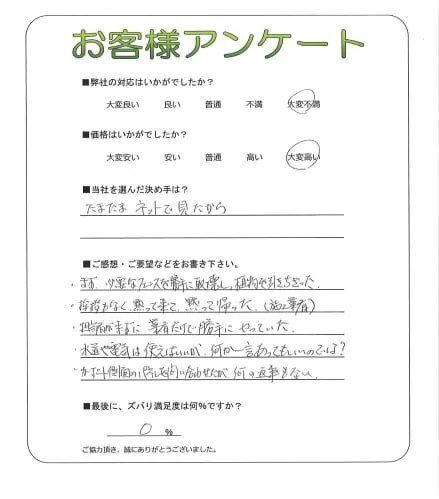 お客様アンケート
■弊社の対応はいかがでしたか?
大変良い 良い 普通 不満 大変不満
■価格はいかがでしたか?
大変安い 安い 普通 高い 大変高い
■当社を選んだ決め手は?
たまたま ネットで見たから
■ご感想・ご要望などをお書き下さい。
・まず、必要なフェンスを勝手に破壊し、植物を引きちぎった。
・挨拶もなく、黙って来て、黙って帰った。(施工業者)
・担当者が来ずに業者だけで勝手にやっていた。
・水道や電気は使えばいいが、何か一言あってもいいのでは?
・カーポート側面の を問い合わせたが何の返事もない。
■最後に、ズバリ満足度は何%ですか?
0 %
ご協力頂き、誠にありがとうございました。